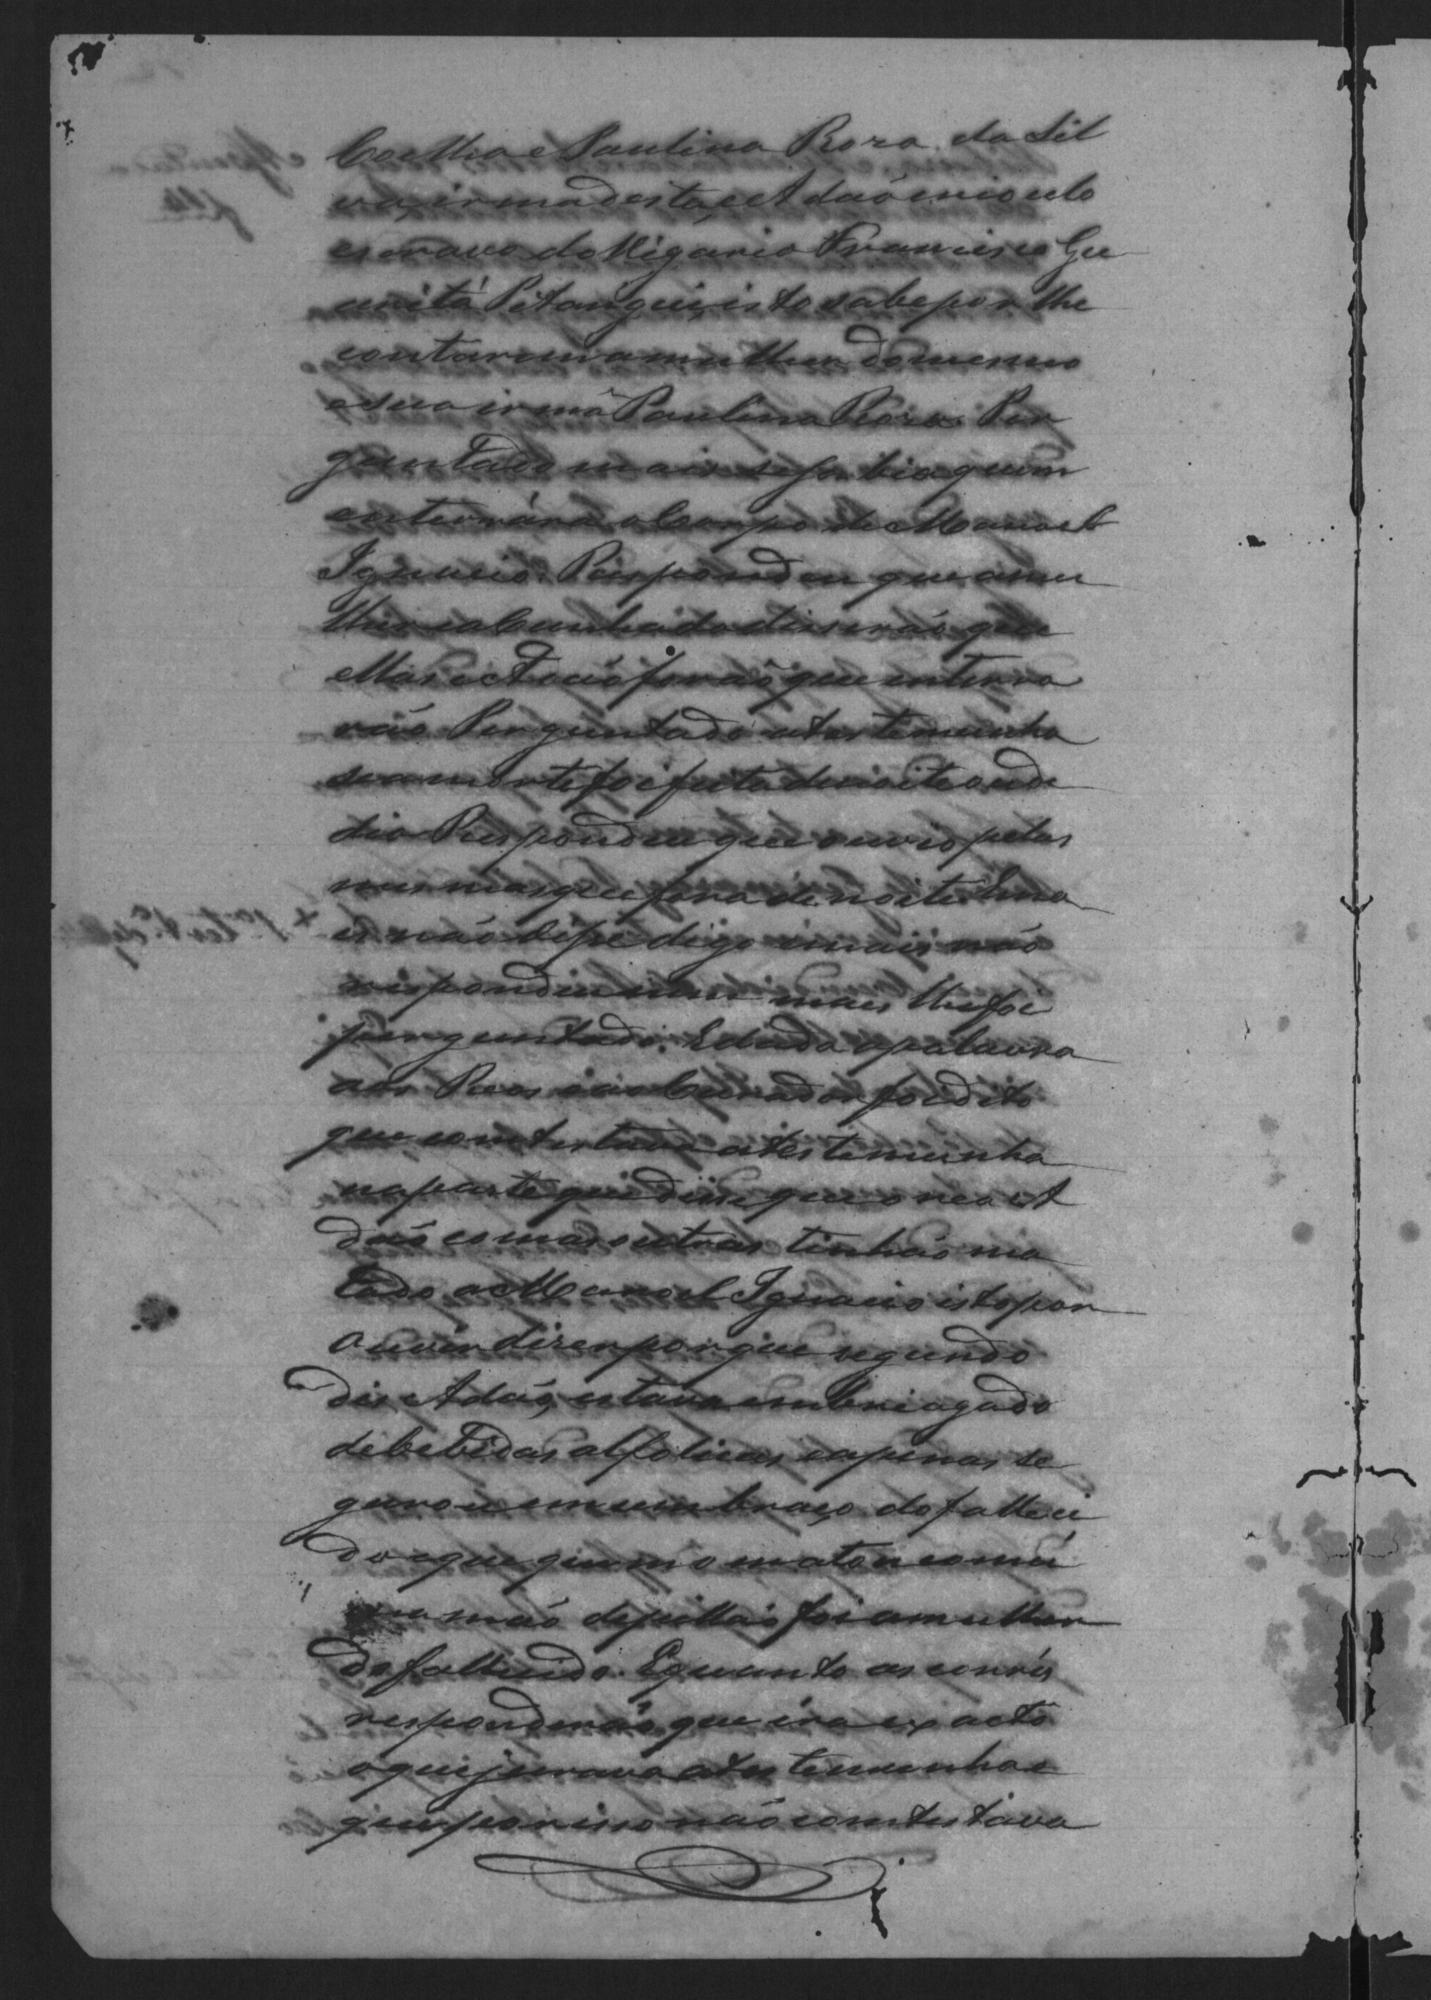 Coelho e Paulina Roza da Sil
va, irmã desta, e Adaó crioulo
escravo do Vigario Francisco Gu
aritá Pitangui, isto sabe por lhe
contarem a mulher do mesmo
e sua irmã Paulina Roza. Per
guntado mais se sabia quem
enterrára o Corpo de Manoel
Ignacio. Respondeu que a mu
lher e a Cunhada disseráo que
ellas e Adaó foráo que enterra
ráo Perguntado a testemunha
se a morte foi feita de noite ou de
dia Respondeu que ouvio pelas
mesmas que fora de noite E ma
is náo disse digo e mais náo
respondeu nem mais lhe foi
perguntado. E dada a palavra
aos Reos e ao Curador foi dito
que contestava a testemunha
na parte que disse que o reo A
dáo com as outras tinháo ma
tado a Manoel Ignacio isto por
ouvir dizer porque segundo
diz Adáo, estava embriagado
de bebidas alcolicas e apenas se
gurou em um braço do falleci
do e que quem o matou com u
ma máo de pilláo foi a mulher
do fallecido. E quanto as corrés
responderáo que era exacto
o que jurava a testemunha e
que por isso náo contestava